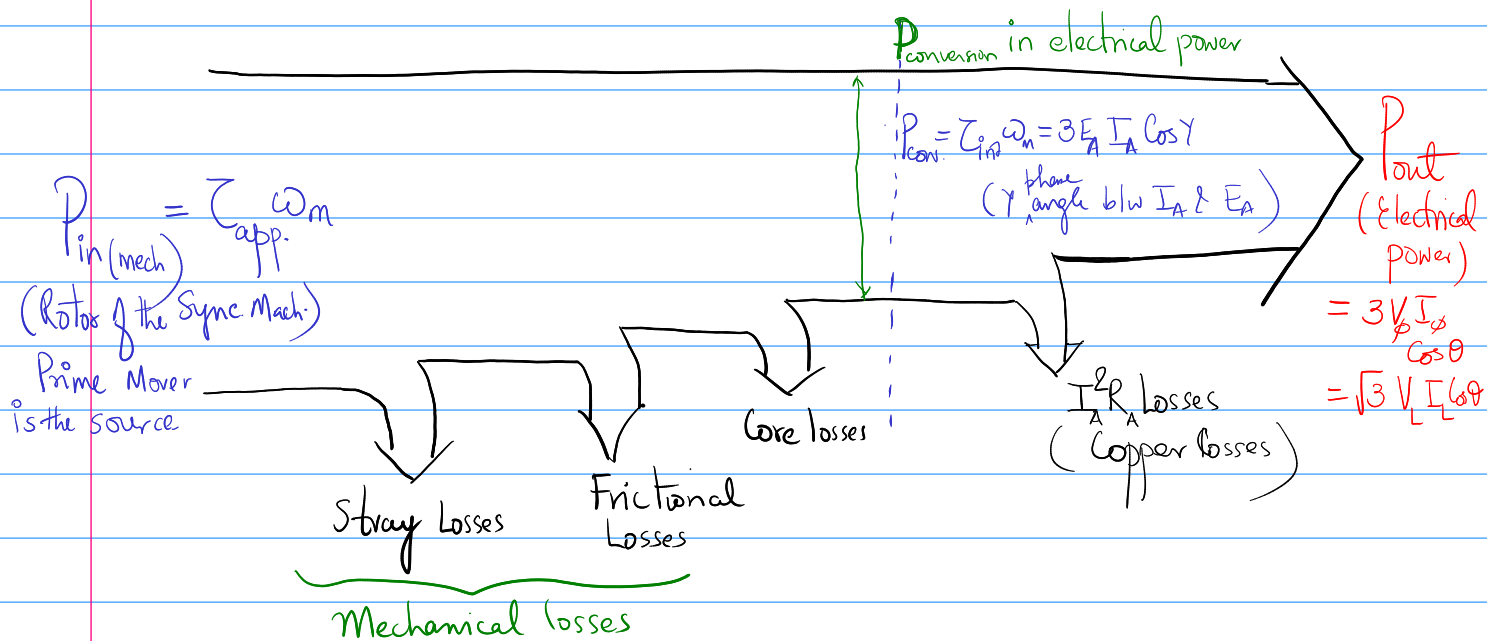 P_conversion in electrical power
P_conv. = τ_ind ω_m = 3E_A I_A Cosγ
(γ phase angle b/w I_A & E_A)
P_in(mech) = τ_app. ω_m
(Rotor of the Sync Mach.)
Prime Mover
is the source
P_out
(Electrical
power)
= 3V_φ I_φ
Cosθ
= √3 V_L I_L Cosθ
I_A²R_A Losses
(Copper losses)
Core losses
Frictional
Losses
Stray Losses
Mechanical losses